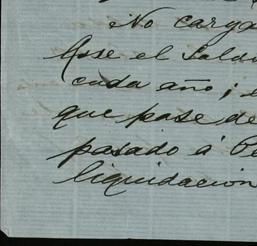 No carga
Asse el Sald
cada año; e
que pase de
pasado á Pe
liquidacion